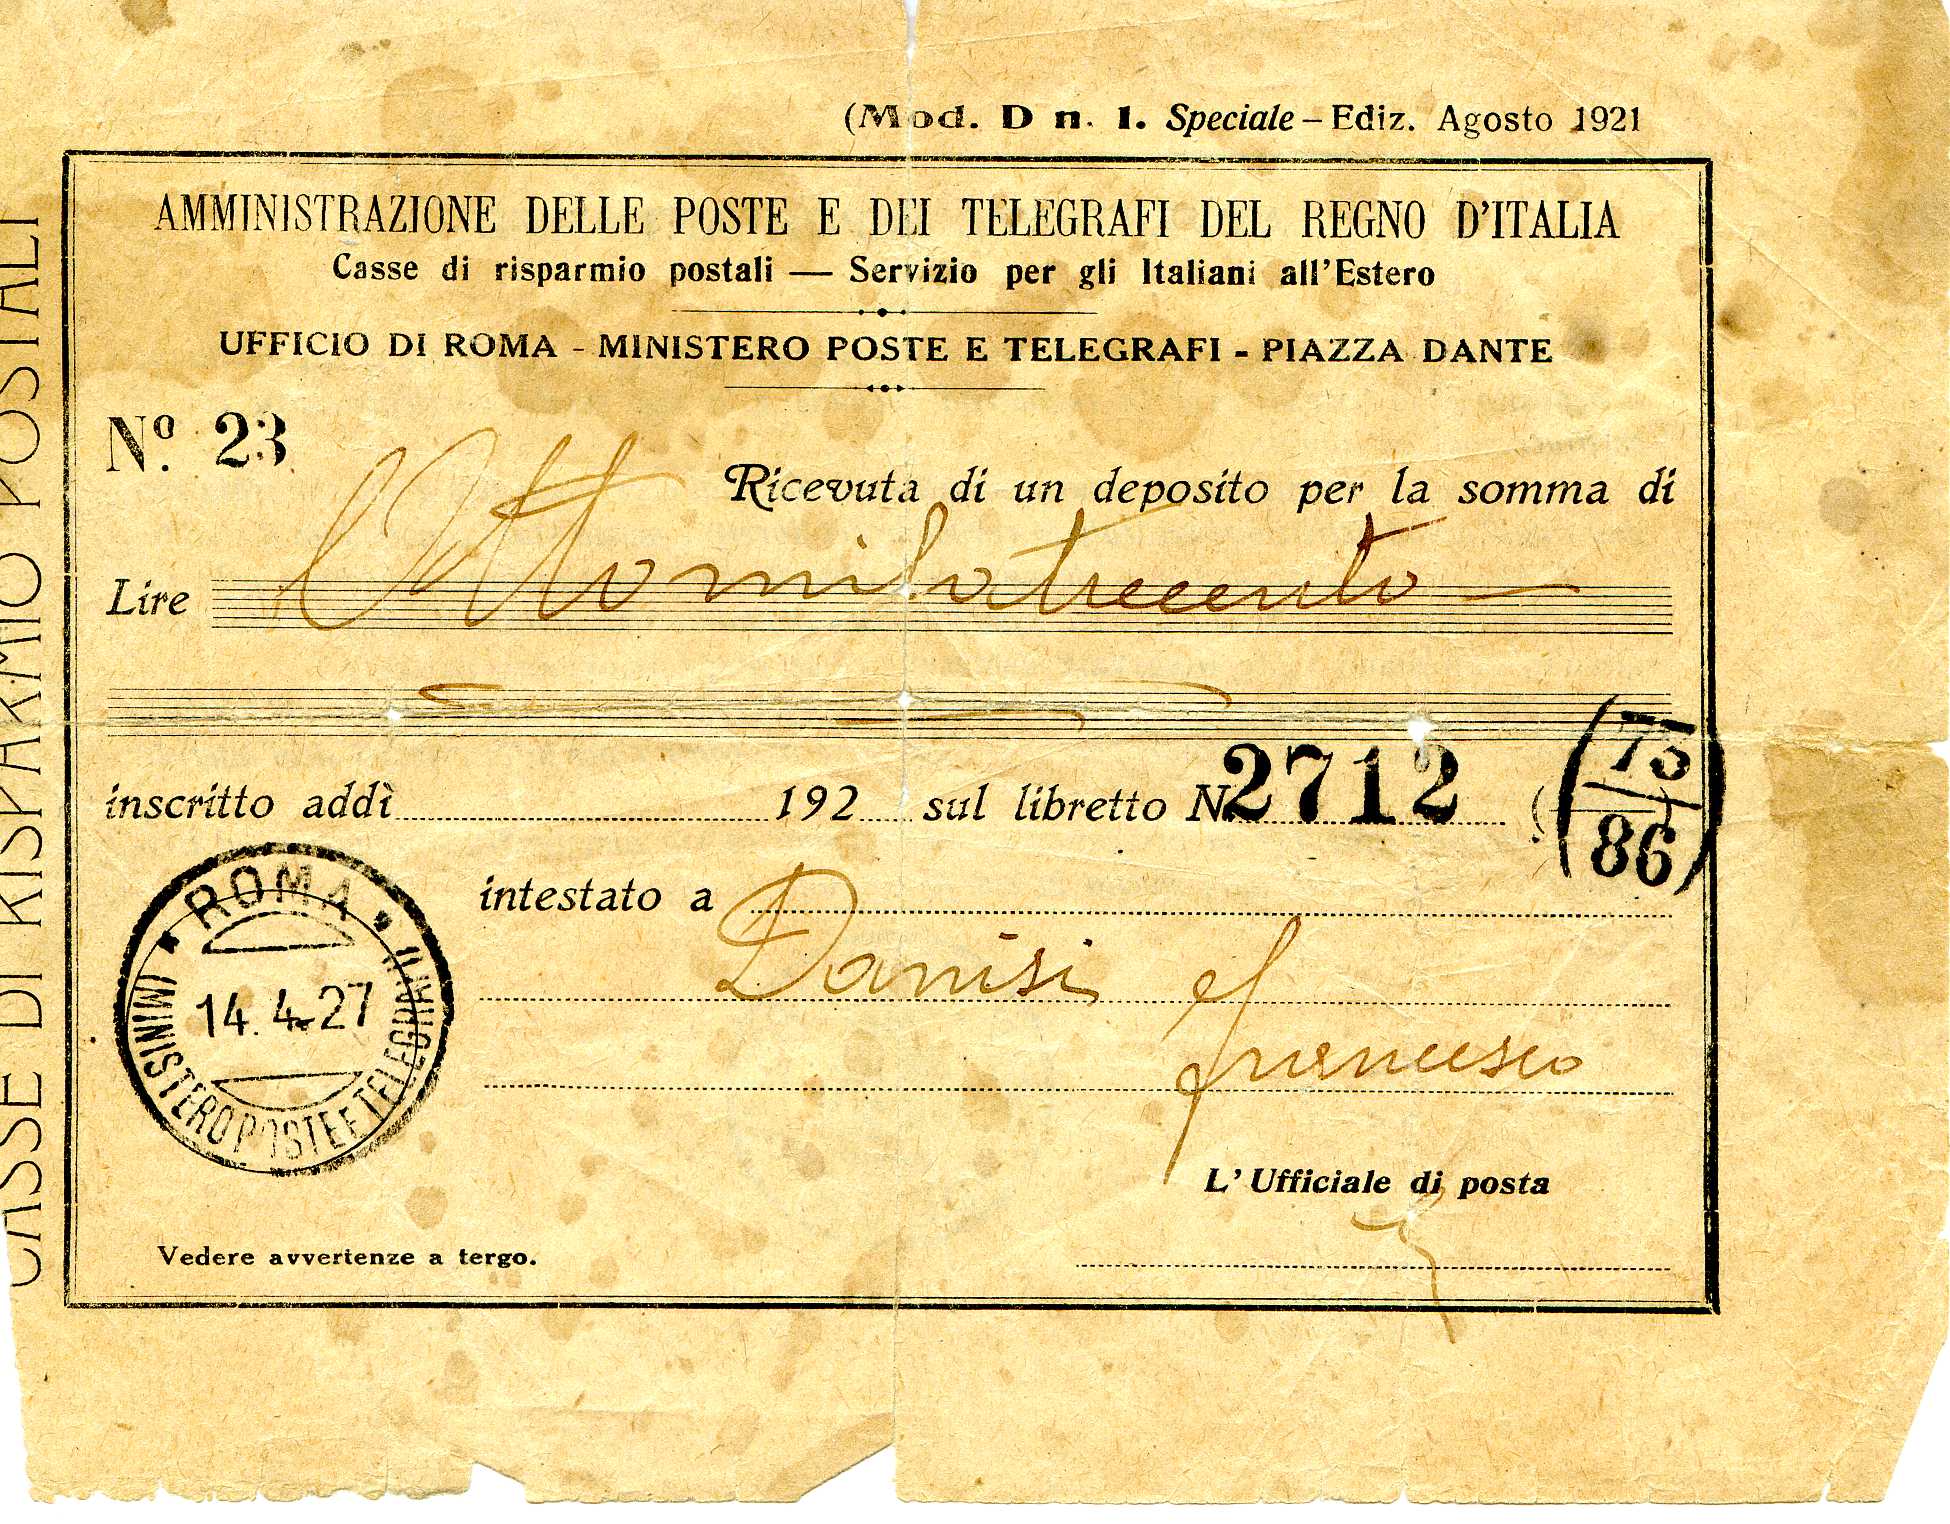 (Mod. D n. 1. Speciale – Ediz. Agosto 1921
CASSE DI RISPARMIO POSTALI
AMMINISTRAZIONE DELLE POSTE E DEI TELEGRAFI DEL REGNO D'ITALIA
Casse di risparmio postali — Servizio per gli Italiani all'Estero
UFFICIO DI ROMA - MINISTERO POSTE E TELEGRAFI - PIAZZA DANTE
Nº. 23
Ricevuta di un deposito per la somma di
Lire Ottomilatrecento —
inscritto addì 192 sul libretto N 2712 (75/86)
intestato a
Danisi
Francesco
ROMA
14.4-27
(MINISTERO POSTE E TELEGRAFI)
L' Ufficiale di posta
Vedere avvertenze a tergo.